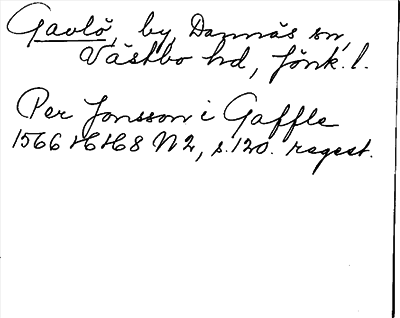 Gavlö, by, Dannäs sn,
Västbo hd, Jönk. l.
Per Jonsson i Gaffle
1566 16/168 N 2, s. 120. regest.